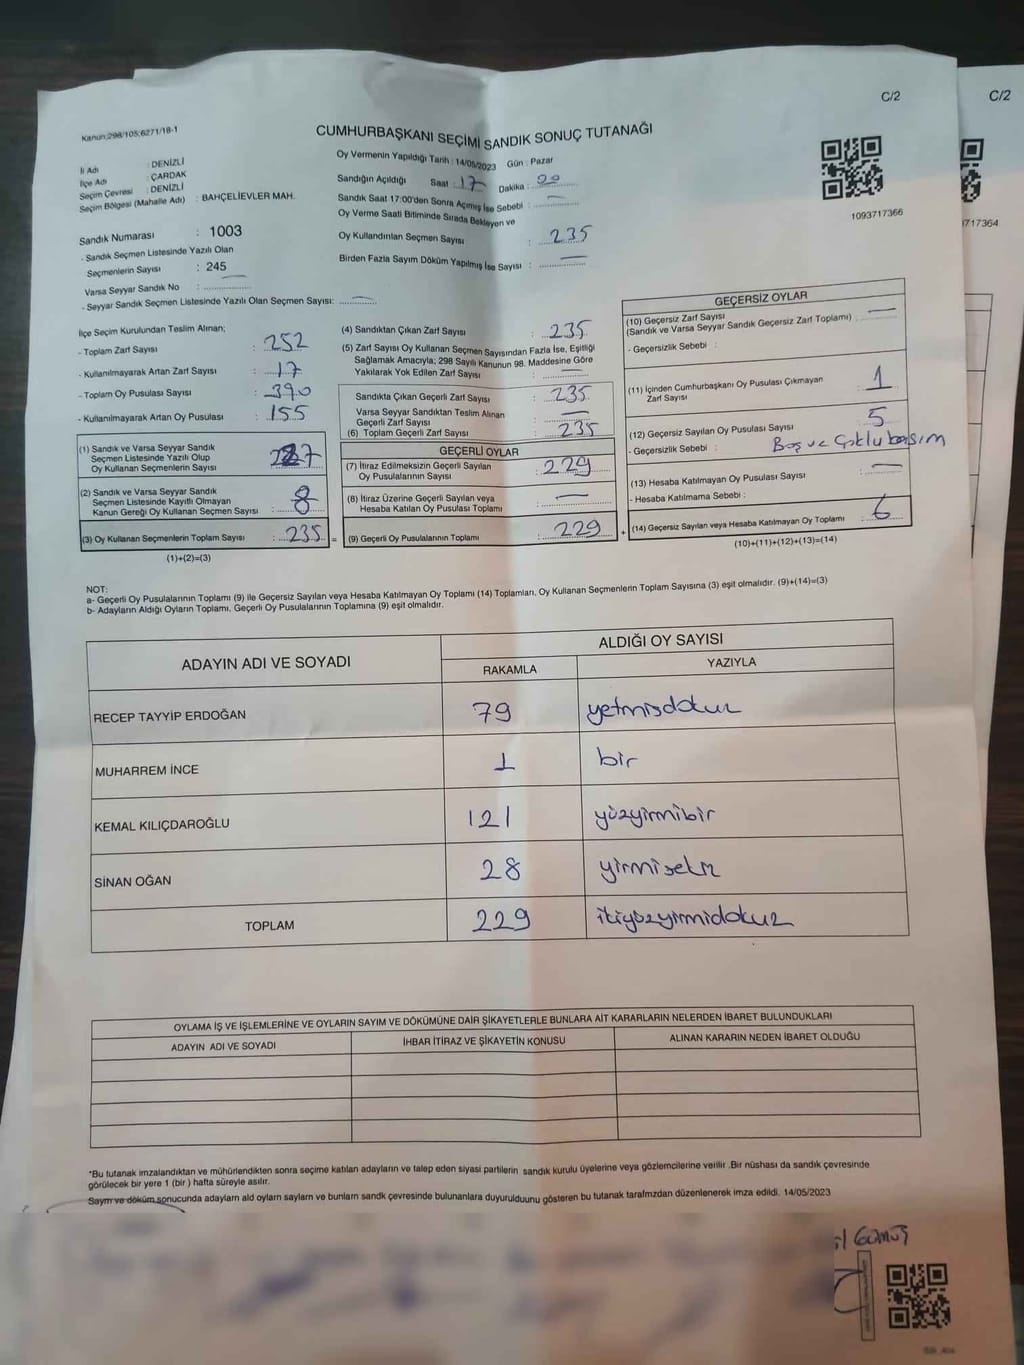 C/2
C/2
Kanun;298/105;6271/18-1
CUMHURBAŞKANI SEÇİMİ SANDIK SONUÇ TUTANAĞI
İl Adı : DENİZLİ
İlçe Adı : ÇARDAK
Seçim Çevresi : DENİZLİ
Seçim Bölgesi (Mahalle Adı) : BAHÇELİEVLER MAH.
Oy Vermenin Yapıldığı Tarih : 14/05/2023 Gün : Pazar
Sandığın Açıldığı Saat : 17 Dakika : 20
Sandık Saat 17:00'den Sonra Açılmış İse Sebebi : —
Oy Verme Saati Bitiminde Sırada Bekleyen ve
Oy Kullandırılan Seçmen Sayısı : 235
Birden Fazla Sayım Döküm Yapılmış İse Sayısı : —
1093717366
717364
Sandık Numarası : 1003
- Sandık Seçmen Listesinde Yazılı Olan
Seçmenlerin Sayısı : 245
Varsa Seyyar Sandık No : —
- Seyyar Sandık Seçmen Listesinde Yazılı Olan Seçmen Sayısı: —
İlçe Seçim Kurulundan Teslim Alınan;
- Toplam Zarf Sayısı : 252
- Kullanılmayarak Artan Zarf Sayısı : 17
- Toplam Oy Pusulası Sayısı : 390
- Kullanılmayarak Artan Oy Pusulası : 155
(1) Sandık ve Varsa Seyyar Sandık
Seçmen Listesinde Yazılı Olup
Oy Kullanan Seçmenlerin Sayısı : 227
(2) Sandık ve Varsa Seyyar Sandık
Seçmen Listesinde Kayıtlı Olmayan
Kanun Gereği Oy Kullanan Seçmen Sayısı : 8
(3) Oy Kullanan Seçmenlerin Toplam Sayısı : 235 =
(1)+(2)=(3)
(4) Sandıktan Çıkan Zarf Sayısı : 235
(5) Zarf Sayısı Oy Kullanan Seçmen Sayısından Fazla İse, Eşitliği
Sağlamak Amacıyla; 298 Sayılı Kanunun 98. Maddesine Göre
Yakılarak Yok Edilen Zarf Sayısı : —
Sandıkta Çıkan Geçerli Zarf Sayısı : 235
Varsa Seyyar Sandıktan Teslim Alınan
Geçerli Zarf Sayısı : —
(6) Toplam Geçerli Zarf Sayısı : 235
GEÇERLİ OYLAR
(7) İtiraz Edilmeksizin Geçerli Sayılan
Oy Pusulası Sayısı : 229
(8) İtiraz Üzerine Geçerli Sayılan veya
Hesaba Katılan Oy Pusulası Toplamı : —
(9) Geçerli Oy Pusulalarının Toplamı : 229 +
GEÇERSİZ OYLAR
(10) Geçersiz Zarf Sayısı
(Sandık ve Varsa Seyyar Sandık Geçersiz Zarf Toplamı) : —
- Geçersizlik Sebebi :
(11) İçinden Cumhurbaşkanı Oy Pusulası Çıkmayan
Zarf Sayısı : 1
(12) Geçersiz Sayılan Oy Pusulası Sayısı : 5
- Geçersizlik Sebebi : Boş ve Çoklu basım
(13) Hesaba Katılmayan Oy Pusulası Sayısı : —
- Hesaba Katılmama Sebebi :
(14) Geçersiz Sayılan veya Hesaba Katılmayan Oy Toplamı : 6
(10)+(11)+(12)+(13)=(14)
NOT:
a- Geçerli Oy Pusulalarının Toplamı (9) ile Geçersiz Sayılan veya Hesaba Katılmayan Oy Toplamı (14) Toplamları, Oy Kullanan Seçmenlerin Toplam Sayısına (3) eşit olmalıdır. (9)+(14)=(3)
b- Adayların Aldığı Oyların Toplamı, Geçerli Oy Pusulalarının Toplamına (9) eşit olmalıdır.
ADAYIN ADI VE SOYADI ALDIĞI OY SAYISI
RAKAMLA YAZIYLA
RECEP TAYYİP ERDOĞAN 79 yetmişdokuz
MUHARREM İNCE 1 bir
KEMAL KILIÇDAROĞLU 121 yüzyirmibir
SİNAN OĞAN 28 yirmisekiz
TOPLAM 229 ikiyüzyirmidokuz
OYLAMA İŞ VE İŞLEMLERİNE VE OYLARIN SAYIM VE DÖKÜMÜNE DAİR ŞİKAYETLERLE BUNLARA AİT KARARLARIN NELERDEN İBARET BULUNDUKLARI
ADAYIN ADI VE SOYADI İHBAR İTİRAZ VE ŞİKAYETİN KONUSU ALINAN KARARIN NEDEN İBARET OLDUĞU
*Bu tutanak imzalandıktan ve mühürlendikten sonra seçime katılan adayların ve talep eden siyasi partilerin sandık kurulu üyelerine veya gözlemcilerine verilir .Bir nüshası da sandık çevresinde
görülecek bir yere 1 (bir ) hafta süreyle asılır.
Sayım ve döküm sonucunda adayların ald oyların sayların ve bunların sandk çevresinde bulunanlara duyurulduunu gösteren bu tutanak tarafmzdan düzenlenerek imza edildi. 14/05/2023